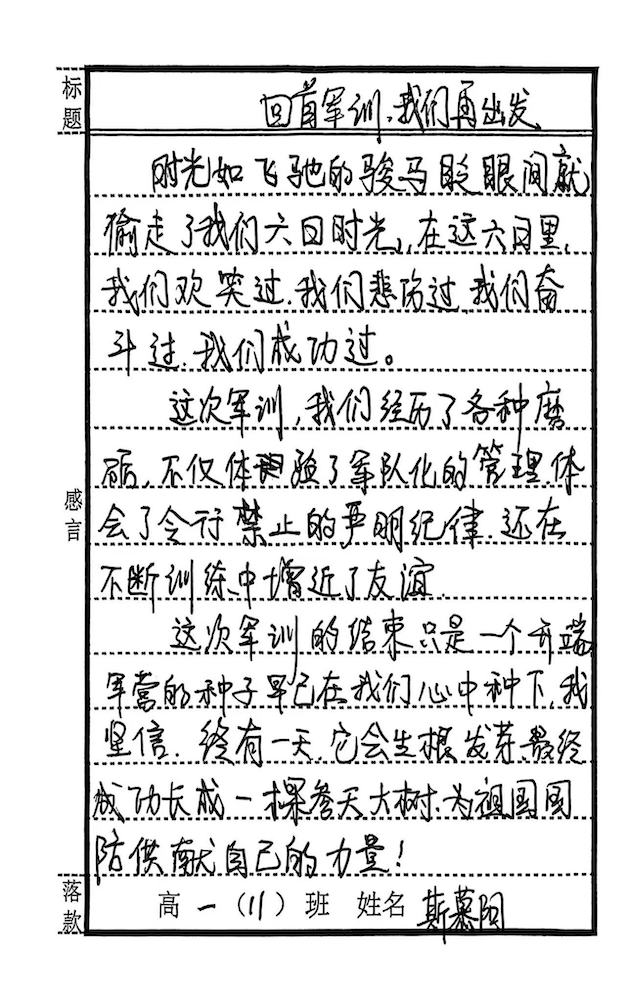 标题
回首军训,我们再出发
时光如飞驰的骏马眨眼间就
偷走了我们六日时光,在这六日里,
我们欢笑过,我们悲伤过,我们奋
斗过,我们成功过。
感言
这次军训,我们经历了各种磨
砺,不仅体验了军队化的管理,体
会了令行禁止的严明纪律,还在
不断训练中增近了友谊.
这次军训的结束只是一个开端,
军营的种子早已在我们心中种下,我
坚信,终有一天,它会生根发芽,最终
成功长成一棵参天大树,为祖国国
防供献自己的力量!
落款
高一(11)班 姓名 斯慕阳